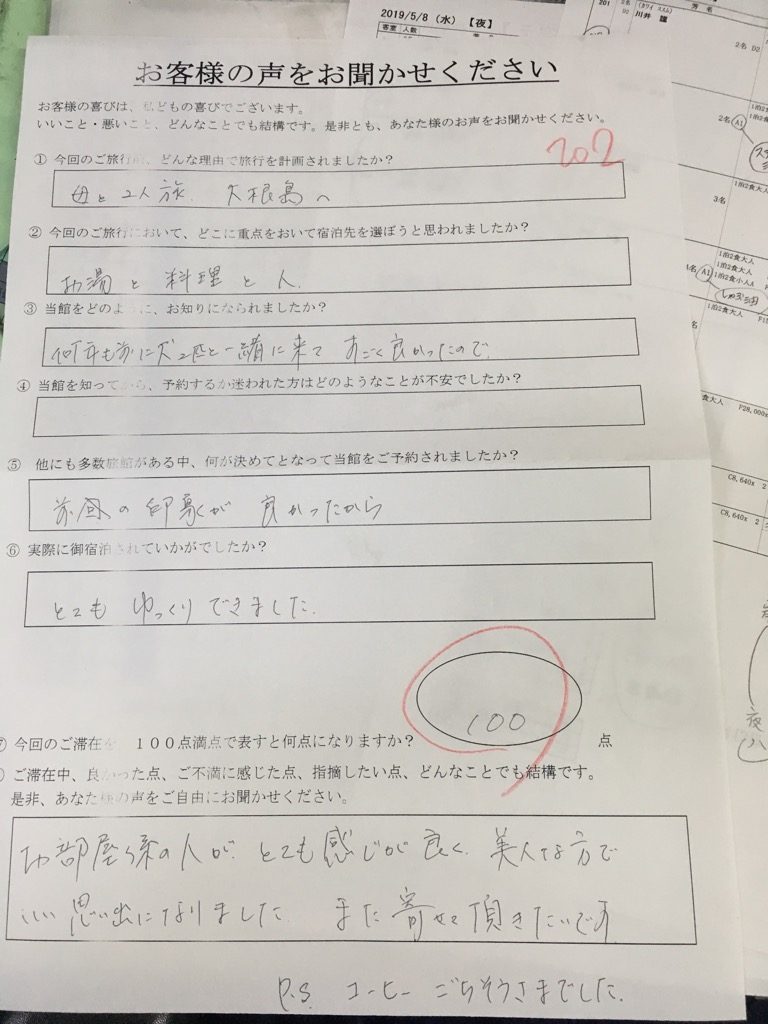 2019/5/8（水）【夜】
客室 人数
201 2名 (カワイ ススム) 芳名
D2 川井 護
2名 D2
お客様の声をお聞かせください
お客様の喜びは、私どもの喜びでございます。
いいこと・悪いこと、どんなことでも結構です。是非とも、あなた様のお声をお聞かせください。
202
① 今回のご旅行は、どんな理由で旅行を計画されましたか？
母と2人旅. 大根島へ
② 今回のご旅行において、どこに重点をおいて宿泊先を選ぼうと思われましたか？
お湯と料理と人.
③ 当館をどのように、お知りになられましたか？
何年も前に犬2匹と一緒に来て すごく良かったので.
④ 当館を知ってから、予約するか迷われた方はどのようなことが不安でしたか？
⑤ 他にも多数旅館がある中、何が決めてとなって当館をご予約されましたか？
前回の印象が良かったから
⑥ 実際に御宿泊されていかがでしたか？
とても ゆっくりできました.
100
⑦ 今回のご滞在を、１００点満点で表すと何点になりますか？ 点
ご滞在中、良かった点、ご不満に感じた点、指摘したい点、どんなことでも結構です。
是非、あなた様の声をご自由にお聞かせください。
お部屋係の人が、とても感じが良く、美人な方で
いい思い出になりました. また寄せて頂きたいです
P.S. コーヒー ごちそうさまでした.
1泊2食大人
2名 A1
1泊2食大人
3名
1泊2食大人
1泊2食大人
1泊2食小人A
名 A1
1泊2食大人
食大人 F28,000x
C8,640x 2
C8,640x 2
夜